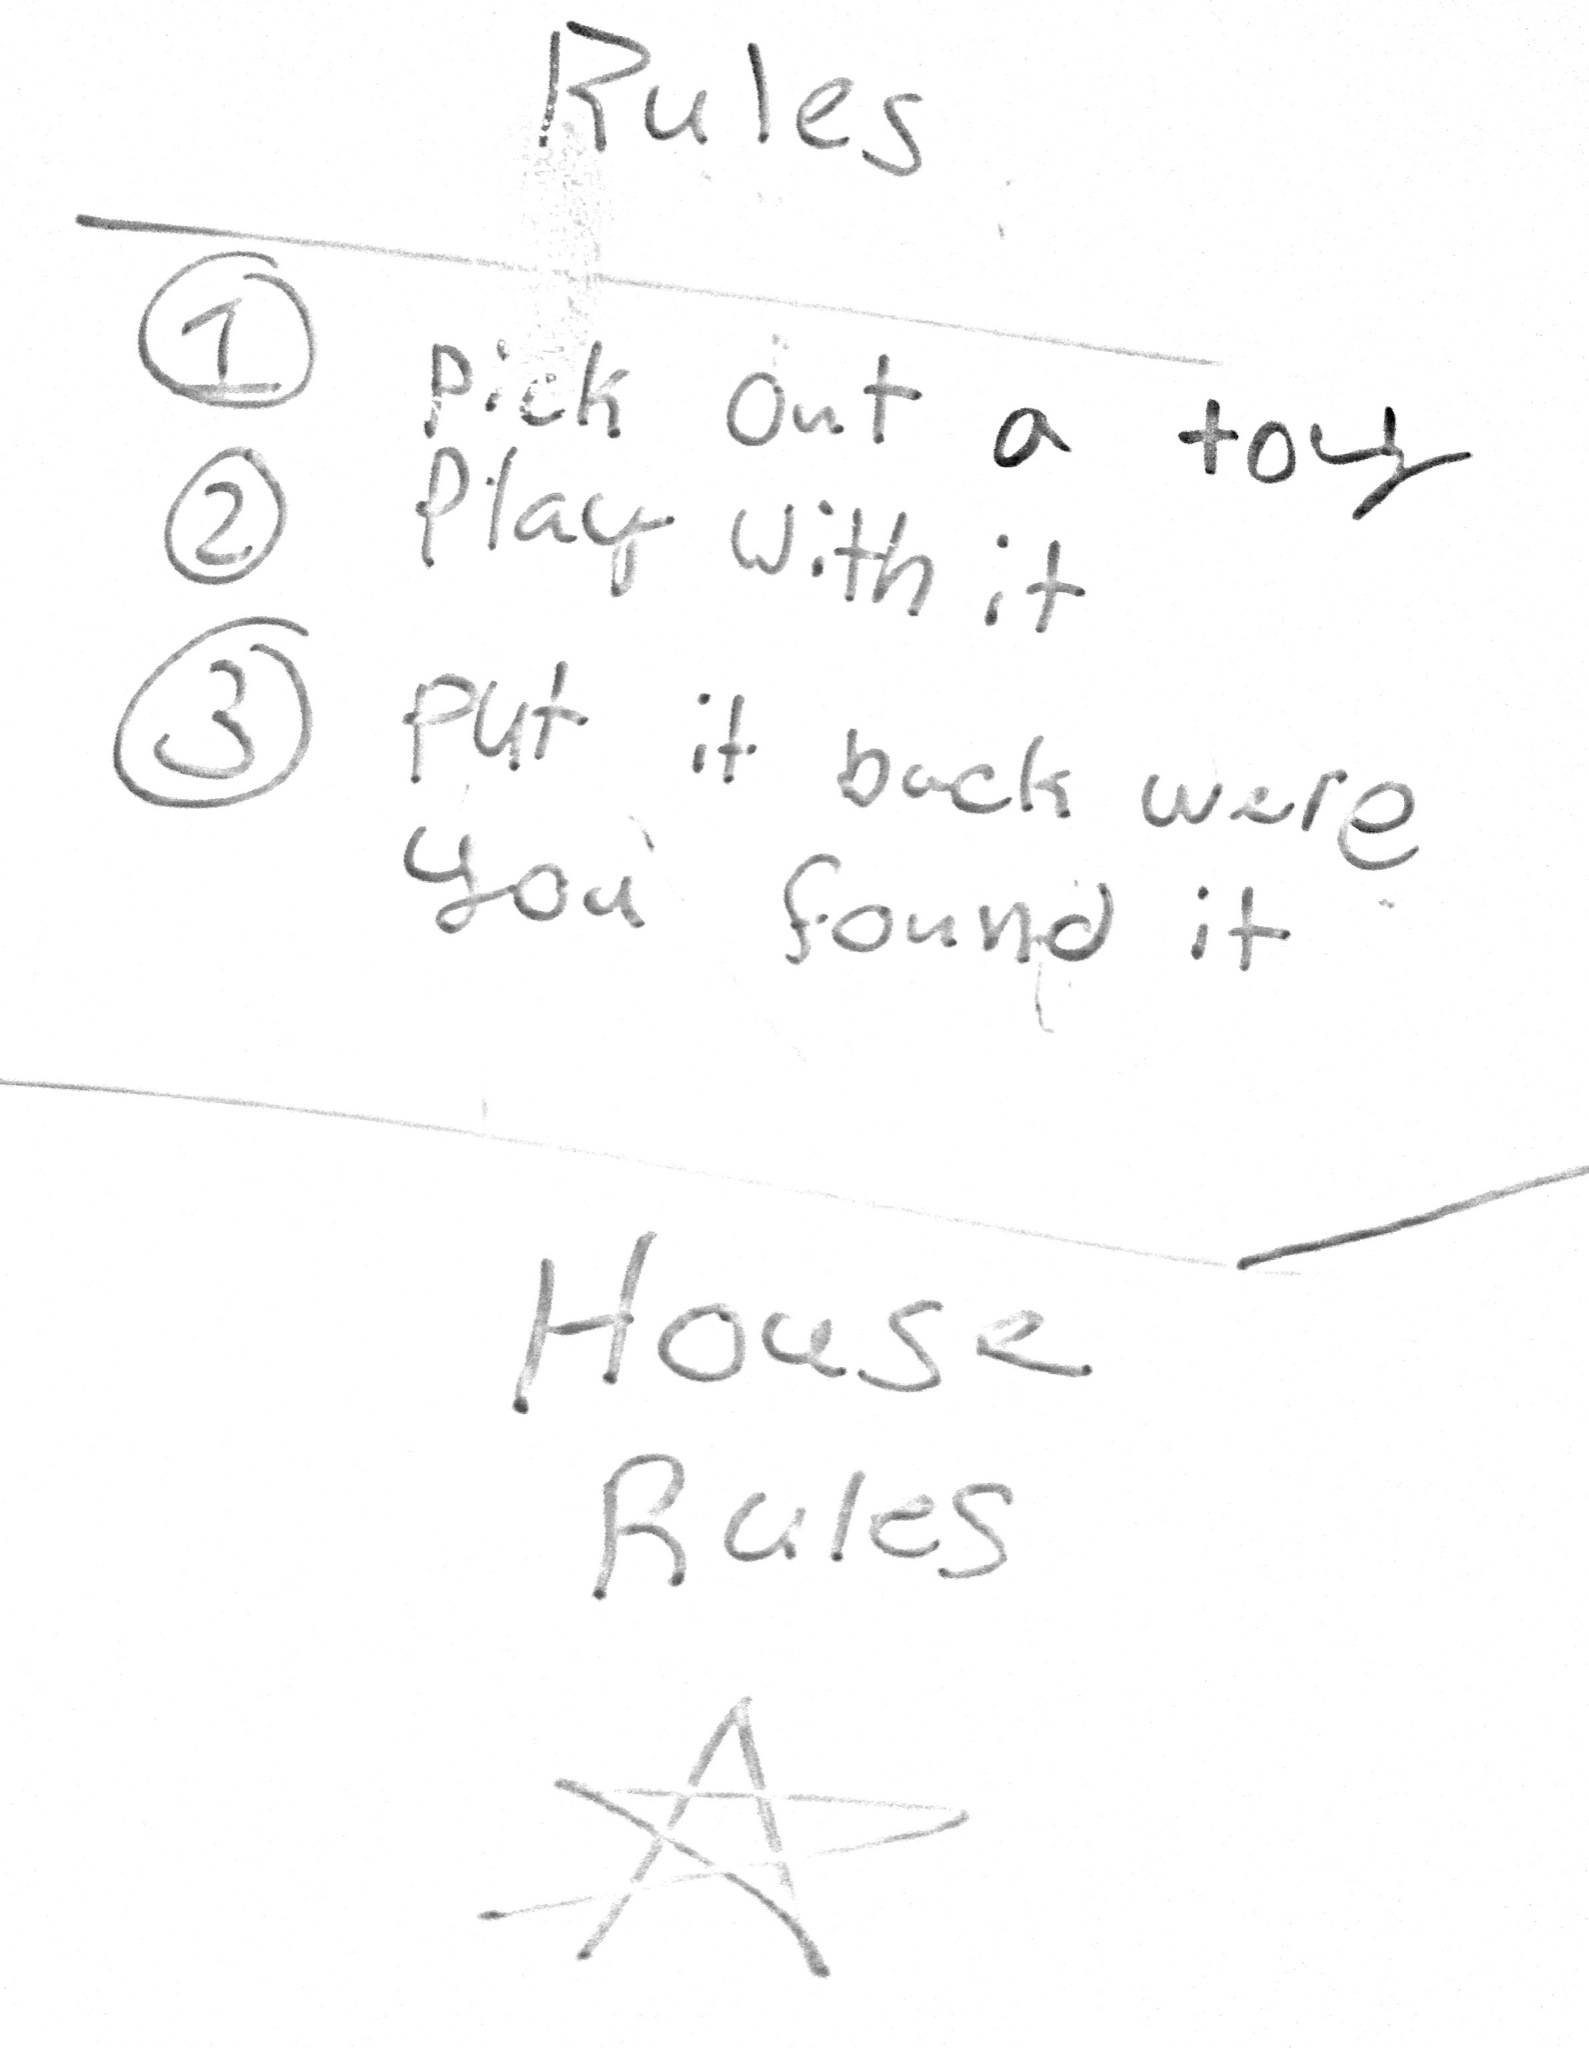 Rules
1 Pick Out a toy
2 Play with it
3 Put it back were
you found it
House
Rules